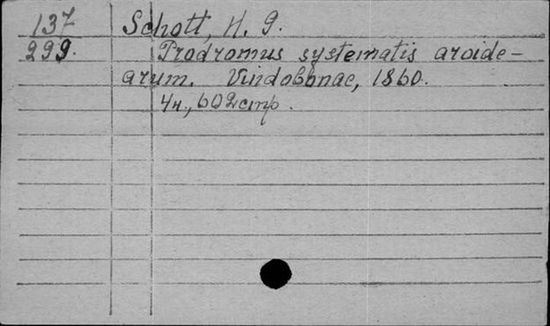 137 Schott, H. G.
299. Prodromus systematis aroide-
arum. Vindobonae, 1860.
4н., 602 стр.